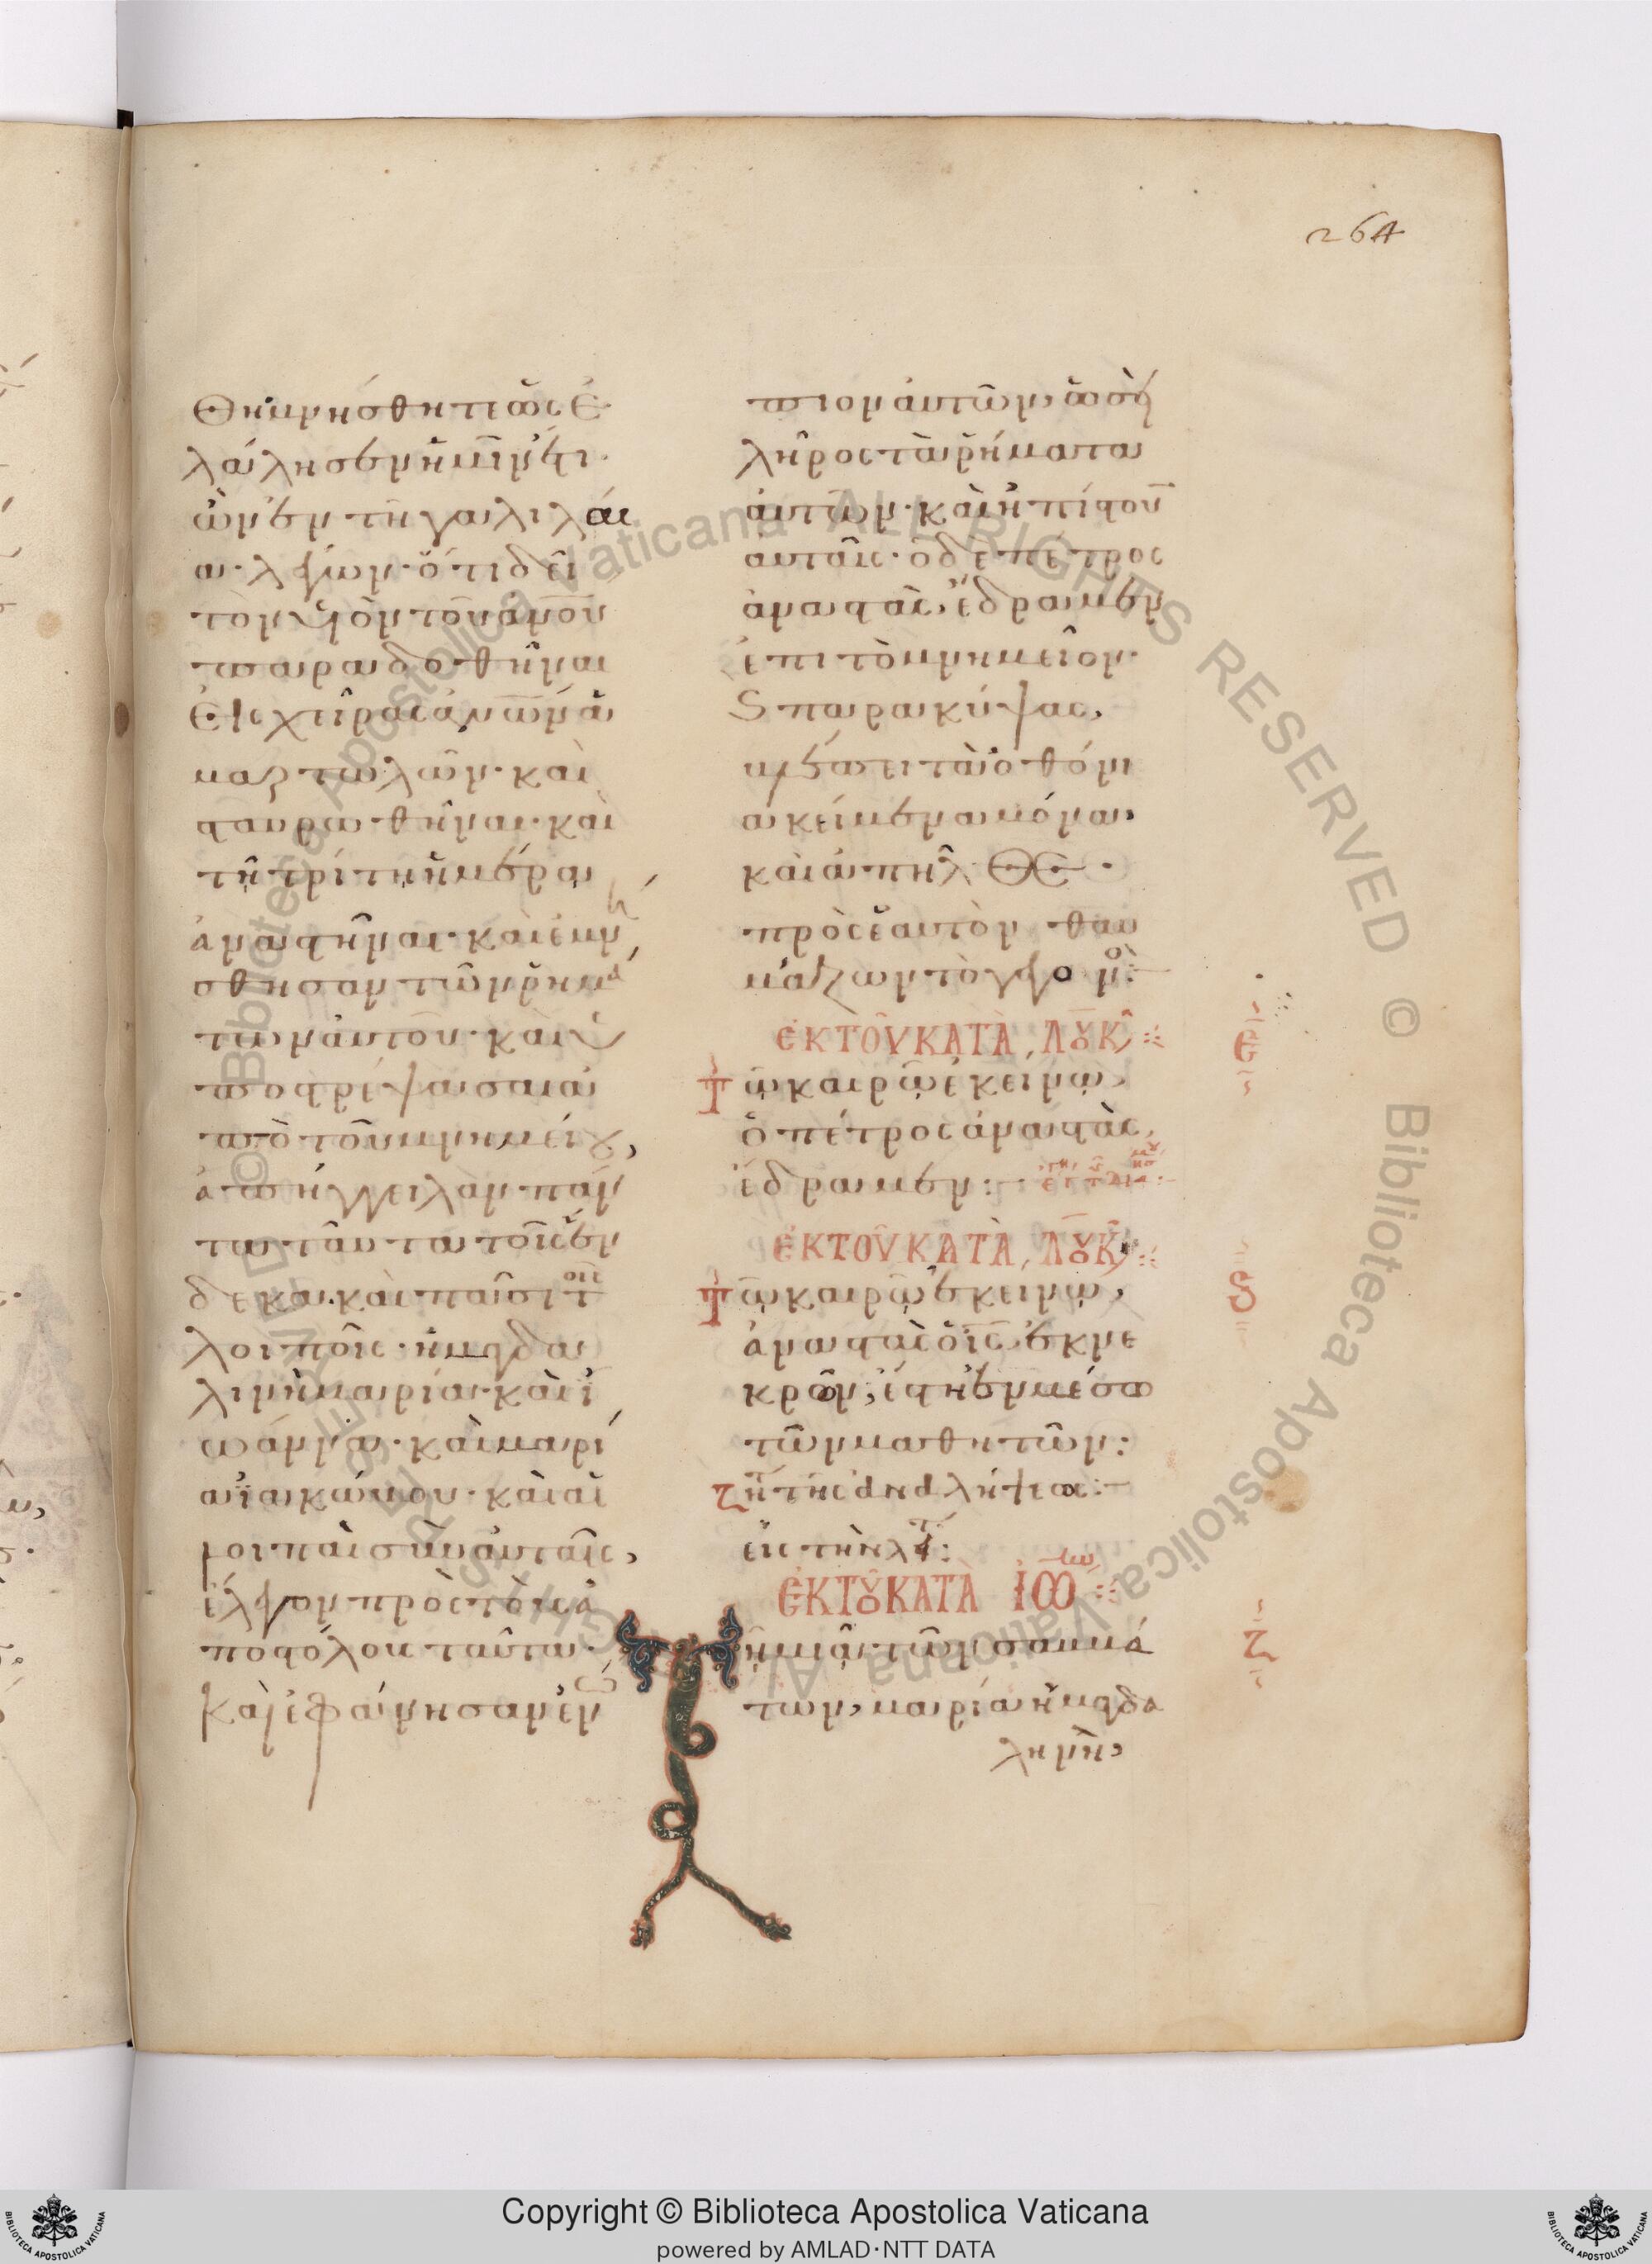 264
Θη· μνήσθητι ὡς ἐ
λάλησεν ἡμῖν ἔτι
ὢν ἐν τῆ γαλιλαί
α· λέγων· ὅτι δεῖ
τὸν υἱὸν τοῦ ἀνου
παραδοθῆναι
εἰς χεῖρας ἀνων ἁ
μαρτωλῶν· καὶ
σταυρωθῆναι· καὶ
τῆ τρίτη ἡμέρα
ἀναστῆναι· καὶ ἐμνή
σθησαν τῶν ρημά
των αὐτοῦ· καὶ ὑ
ποστρέψασαι ἀ
πὸ τοῦ μνημείου,
ἀπήγγειλαν πάν
τα ταῦτα τοῖς ἕν
δεκα· καὶ πᾶσι τοῖς
λοιποῖς· ἡ μαγδα
λινὴ μαρία· καὶ ἰ
ωάννα· καὶ μαρί
α ἰακώβου· καὶ αἱ
λοιπαὶ σὺν αὐταῖς,
ἔλεγον πρὸς τοὺς ἀ
ποστόλους ταῦτα·
καὶ ἐφάνησαν ἐνώ
πιον αὐτῶν, ὡσεὶ
λῆρος τὰ ῥήματα
αὐτῶν· καὶ ἠπίστουν
αὐταῖς· ὁ δὲ πέτρος
ἀναστὰς, ἔδραμεν
ἐπὶ τὸ μνημεῖον·
Ϛ παρακύψας,
βλέπει τὰ ὀθόνι
α κείμενα μόνα,
καὶ ἀπηλΘΕ·
πρὸς ἑαυτὸν θαυ
μάζων τὸ γεγονός:
ἐΚ ΤΟῦ ΚΑΤΑ ΛΟΥΚ
Τῶ καιρῶ ἐκείνω,
ὁ πέτρος ἀναστὰς,
ἔδραμεν:
ἐΚ ΤΟῦ ΚΑΤΑ ΛΟΥΚ
Τῶ καιρῶ ἐκείνω,
ἀναστὰς ὁ ις ἐκ νε
κρῶν, ἔστη ἐν μέσω
τῶν μαθητῶν:
ζητ τῆς ἀναλήψεως:
εἰς τὴν λιτ:
ἐΚ ΤΟΥ ΚΑΤΑ ΙΩ
Τῆ μιᾶ τῶν σαββά
των, μαρία ἡ μαγδα
ληνὴ,
Ε
Ϛ
Ζ
Copyright © Biblioteca Apostolica Vaticana
powered by AMLAD·NTT DATA